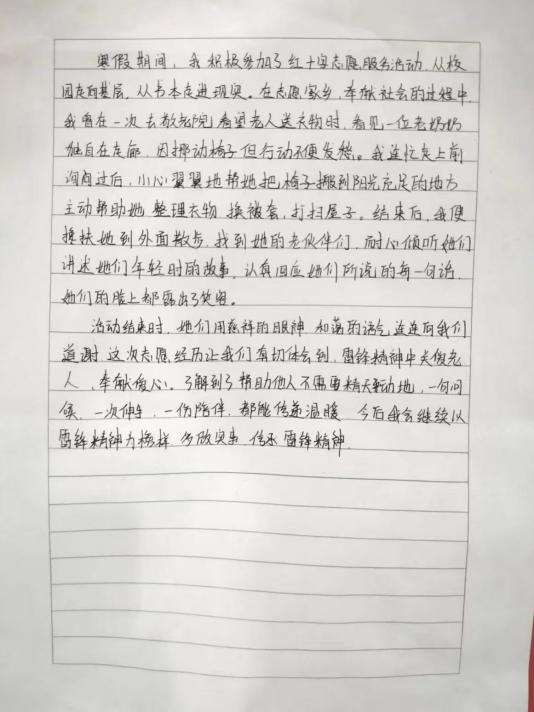 寒假期间，我积极参加了红十字志愿服务活动，从校
园走向基层，从书本走进现实。在志愿家乡，奉献社会的过程中
我曾在一次去敬老院看望老人送衣物时，看见一位老奶奶
独自在走廊，因挪动椅子但行动不便发愁。我连忙走上前
询问过后，小心翼翼地帮她把椅子搬到阳光充足的地方
主动帮助她整理衣物，换被套，打扫屋子。结束后，我便
搀扶她到外面散步，找到她的老伙伴们，耐心倾听她们
讲述她们年轻时的故事，认真回应她们所说的每一句话，
她们的脸上都露出了笑容。
活动结束时，她们用慈祥的眼神 和蔼的语气连连向我们
道谢，这次志愿经历让我们真切体会到，雷锋精神中关爱老
人，奉献爱心。了解到了帮助他人不需要惊天动地，一句问
候，一次伸手，一份陪伴，都能传递温暖 今后我会继续以
雷锋精神为榜样 多做实事 传承雷锋精神.